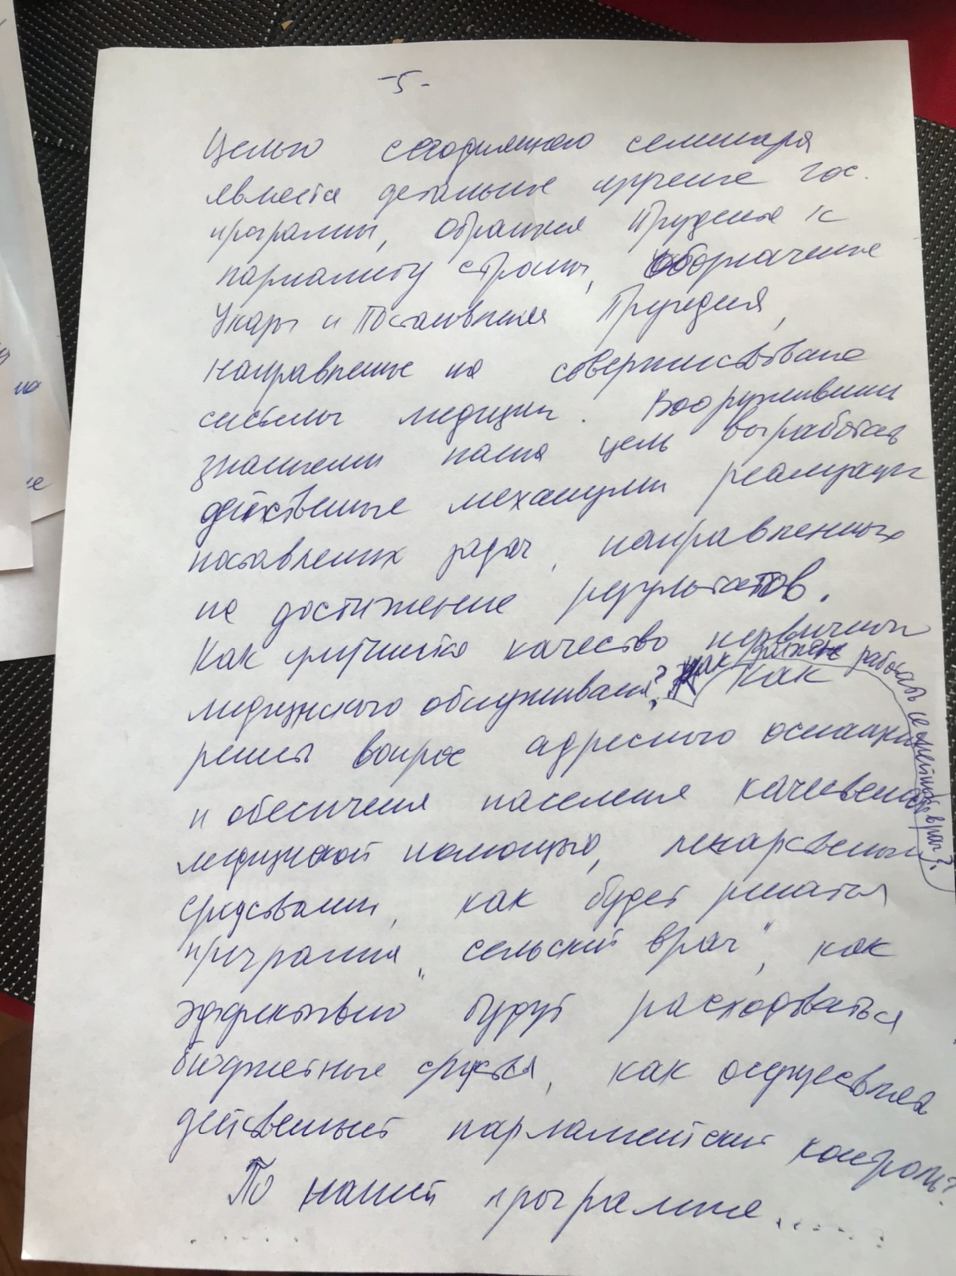 -5-
Целью сегодняшнего семинара
является детальное изучение Гос.
программы, обращения Президента к
парламенту страны, обозначенные
Указы и Постановления Президента,
направленные на совершенствование
системы медицины. Вооружившись
знаниями наша цель выработать
действенные механизмы реализации
поставленных задач, направленных
на достижение результатов.
Как улучшить качество первичного
медицинского обслуживания? Как
как должен работать семейный врач?
решить вопрос адресного оснащения
и обеспечения населения качественной
медицинской помощью, лекарственными
средствами, как будет решаться
программа "сельский врач", как
эффективно будут расходоваться
бюджетные средства, как осуществлять
действенный парламентский контроль?
По нашей программе......